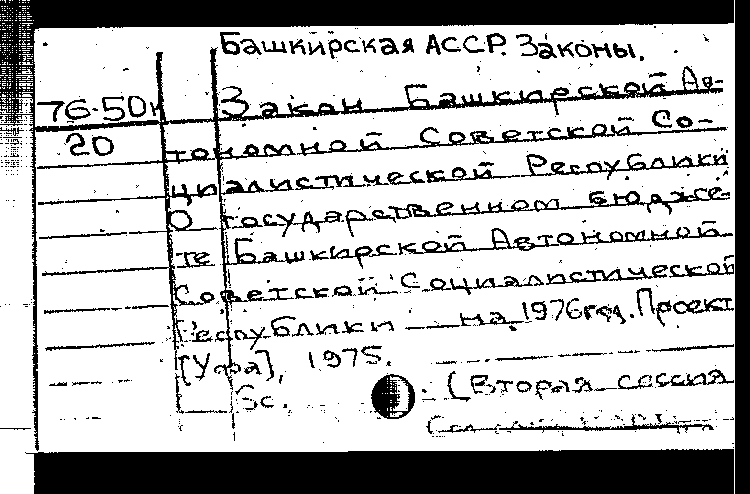 Башкирская АССР. Законы.
76-50к
20
Закон Башкирской Ав-
тономной Советской Со-
циалистической Республики
о государственном бюдже-
те Башкирской Автономной
Советской Социалистической
Республики на 1976 год. Проект
[Уфа], 1975.
6с. (Вторая сессия